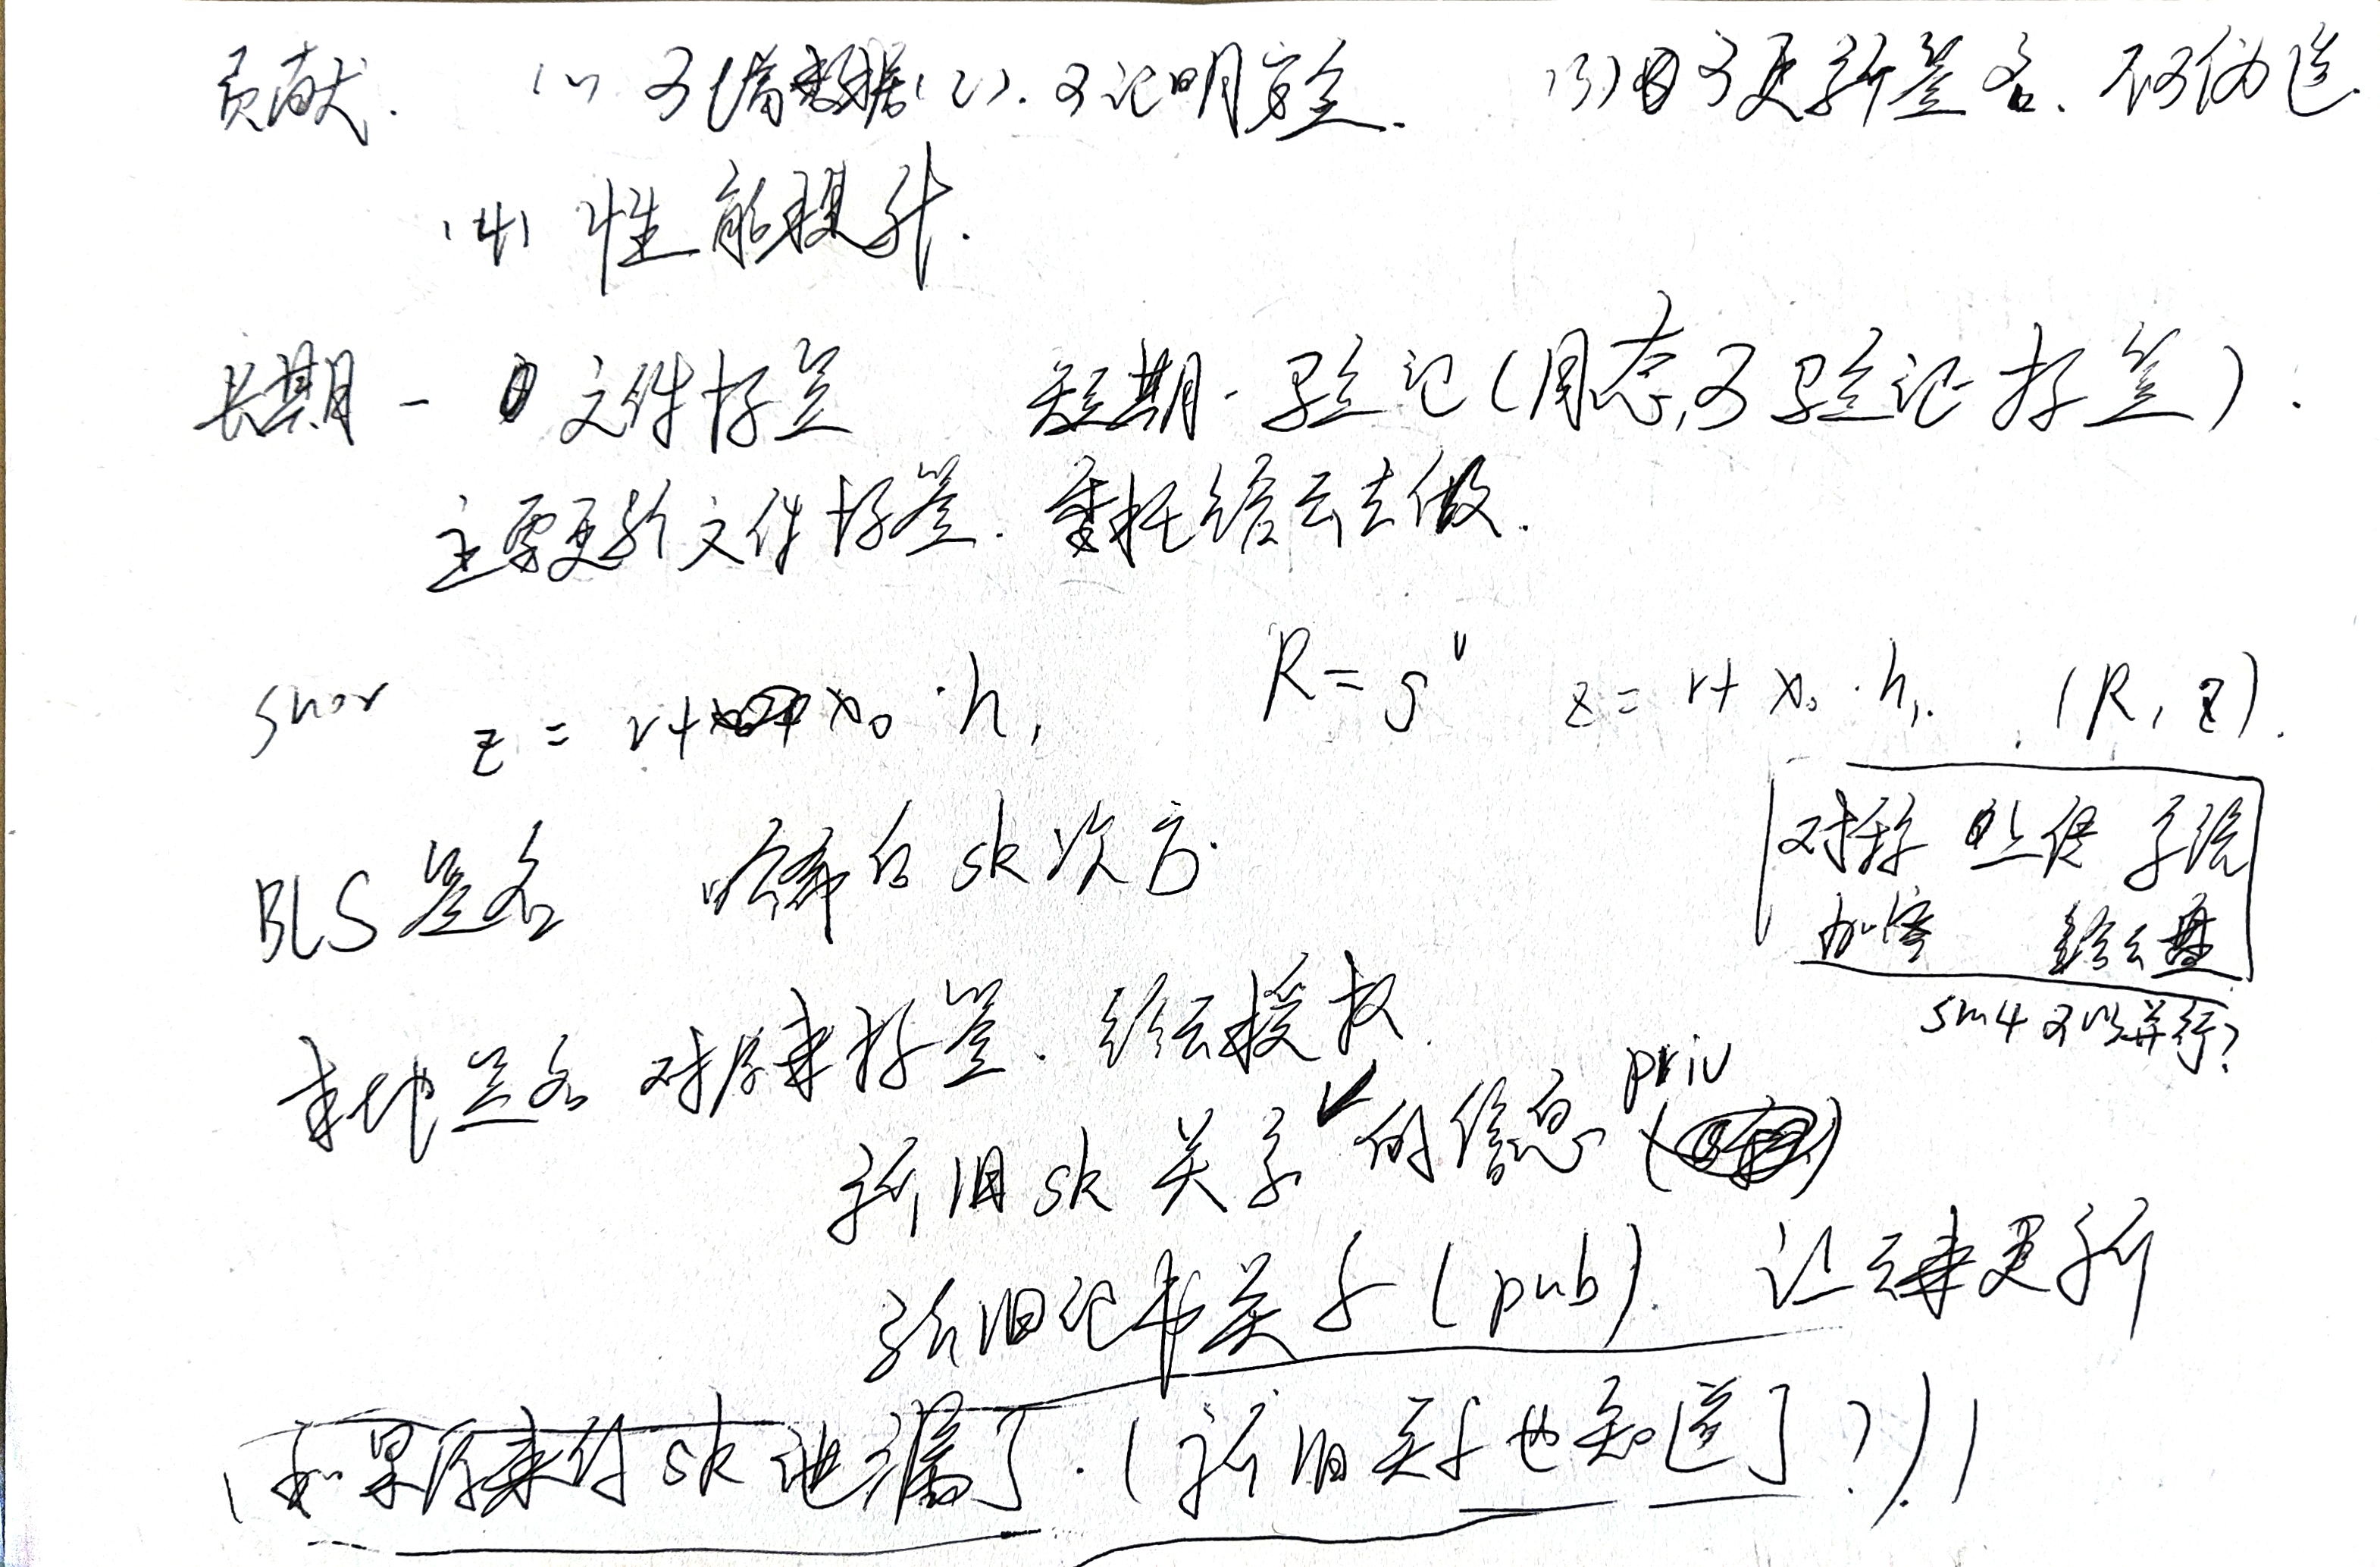 贡献. (1) 可信数据 (2). 可证明安全. (3) 可更新签名. 不可伪造.
(4) 性能提升.
长期 - 文件标签 短期 - 验证 (同态,可验证标签).
主要更新文件标签. 委托给云去做.
snor z = r + x₀ · h₁ R = gʳ z = r + x₀ · h₁. (R, z).
对称 上传 子统
加密 给云盘
BLS 签名 哈希的 sk 次方.
sm4 可以并行?
本地签名 对原来标签. 给云授权.
新旧 sk 关系的信息 (priv)
新旧证书关系 (pub) 让云来更新
(如果原来的 sk 泄漏了. (新旧关系也知道了?))